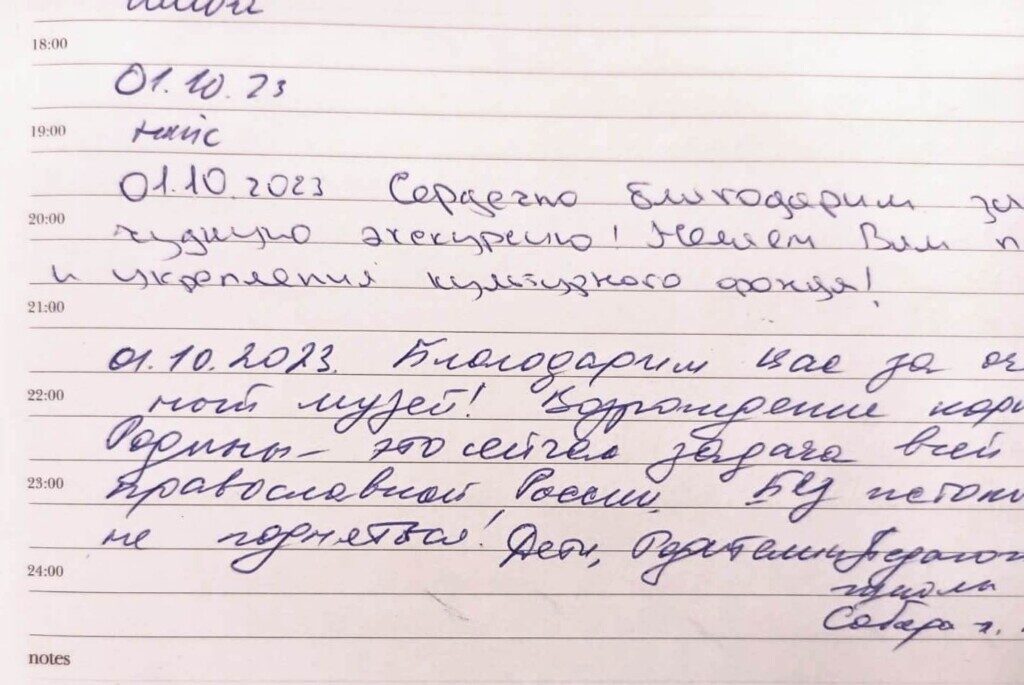 18:00
01.10.23
19:00
найс
01.10.2023 Сердечно благодарим за
20:00
чудную экскурсию! Желаем Вам п
и укрепления культурного фонда!
21:00
01.10.2023. Благодарим вас за оч
22:00
ный музей! Возрождение
Родины – это сейчас задача всей
23:00
православной России. Без
не подняться! Дети, Родители и Педагог
24:00
школы
notes